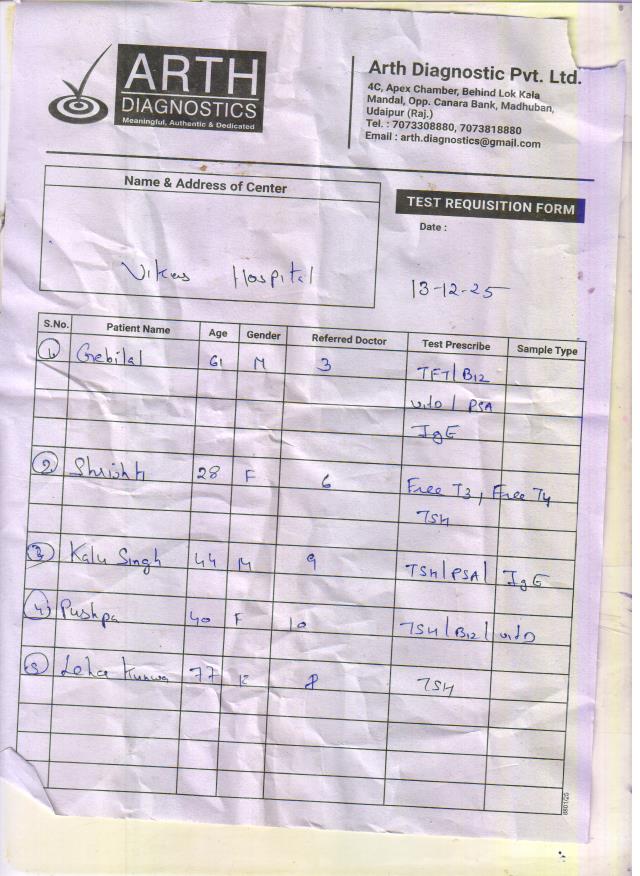 ARTH
DIAGNOSTICS
Meaningful, Authentic & Dedicated
Arth Diagnostic Pvt. Ltd.
4C, Apex Chamber, Behind Lok Kala
Mandal, Opp. Canara Bank, Madhuban,
Udaipur (Raj.)
Tel. : 7073308880, 7073818880
Email : arth.diagnostics@gmail.com
Name & Address of Center
Vikas Hospital
TEST REQUISITION FORM
Date :
13-12-25
S.No. Patient Name Age Gender Referred Doctor Test Prescribe Sample Type
1 Gebilal 61 M 3 TFT/B12
vitD / PSA
IgE
2 Shrishti 28 F 6 Free T3, Free T4
TSH
3 Kalu Singh 44 M 9 TSH/PSA/ IgE
4 Pushpa 40 F 10 TSH/B12/ vitD
5 77 8 TSH
8801/25